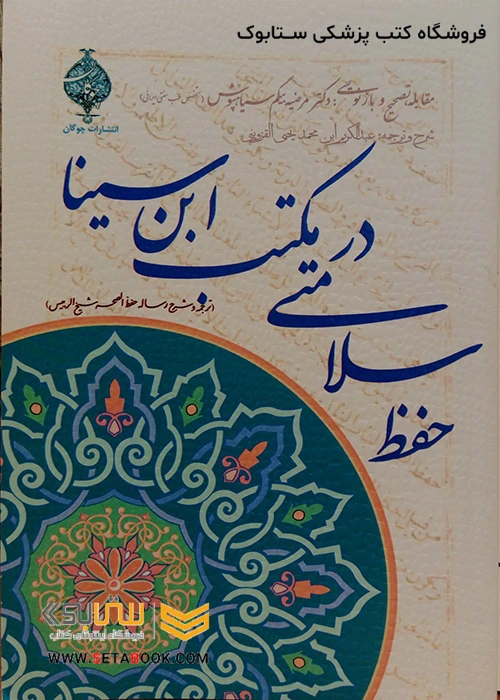 فروشگاه کتب پزشکی ستابوک
انتشارات چوگان
مقابله، تصحیح و بازنویسی: دکتر مرضیه بیگم سیاهپوش (متخصص طب سنتی ایرانی)
شرح و ترجمه: عبدالکریم ابن محمد یحیی القزوینی
حفظ سلامتی در مکتب ابن سینا
(ترجمه و شرح رساله حفظ الصحه شیخ الرییس)
فروشگاه اینترنتی کتاب
WWW.SETABOOK.COM